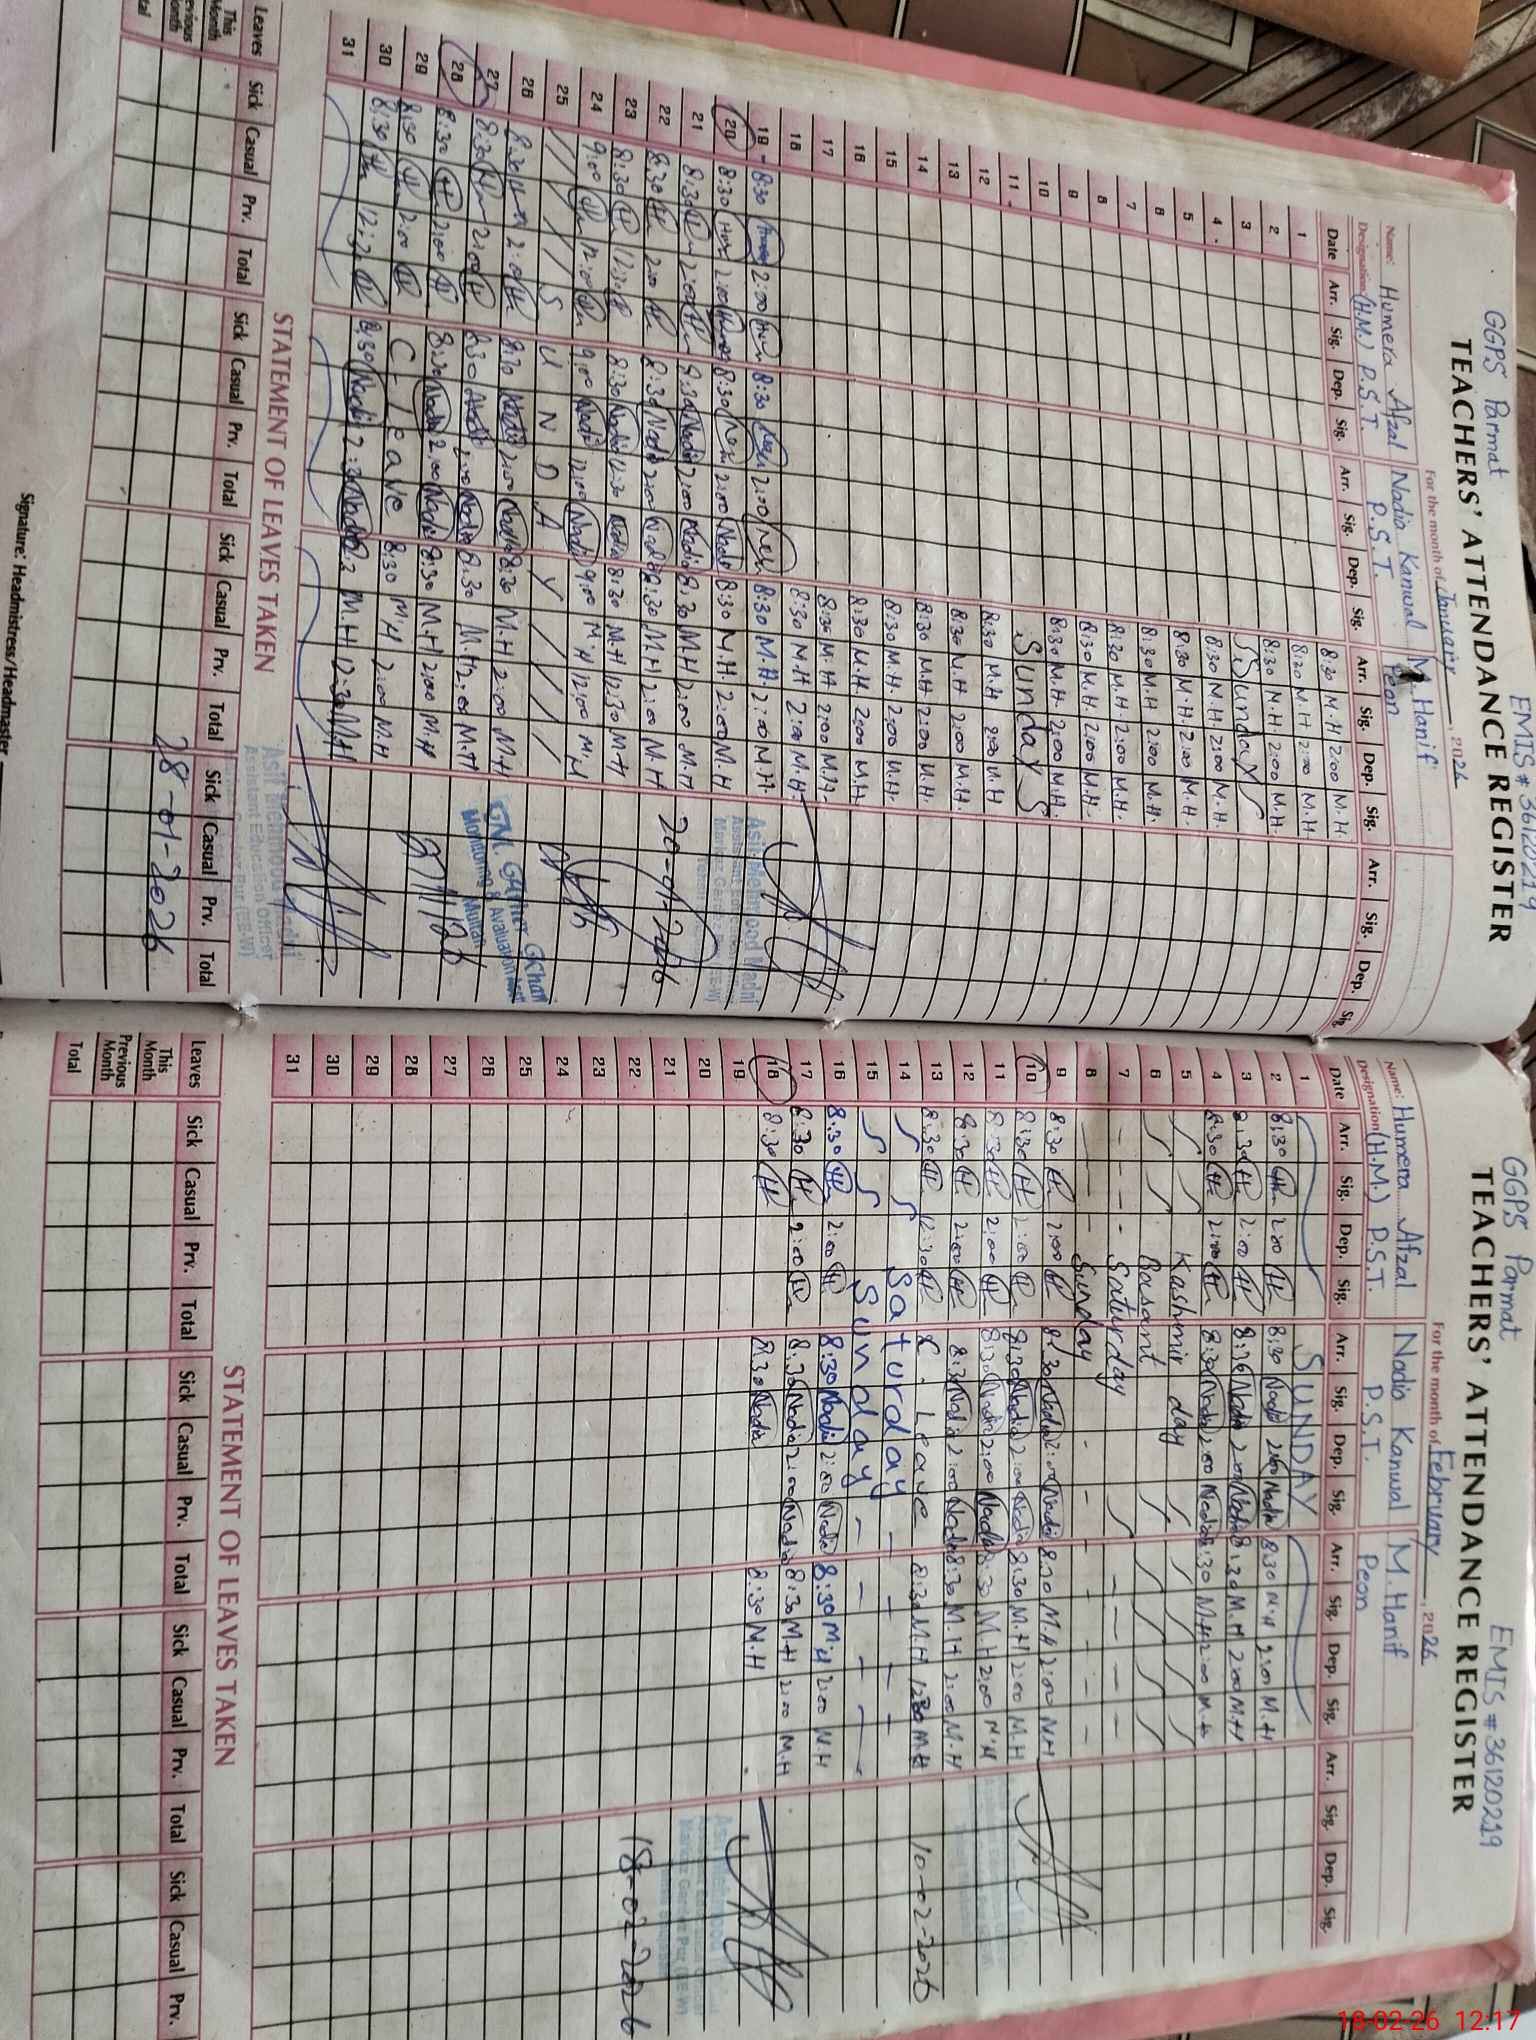 GGPS Parmat EMIS # 36120219
TEACHERS' ATTENDANCE REGISTER
For the month of January, 2026
Name: Humera Afzal Nadia Kanwal M. Hanif
Designation: (H.M.) P.S.T. P.S.T. Peon
Date Arr. Sig. Dep. Sig. Arr. Sig. Dep. Sig. Arr. Sig. Dep. Sig. Arr. Sig. Dep. Sig.
1 8:30 M.H 2:00 M.H.
2 8:30 M.H 2:00 M.H.
3 8:30 M.H. 2:00 M.H.
4. Sunday
5 8:30 M.H 2:00 M.H.
6 8:30 M.H. 2:00 M.H.
7 8:30 M.H 2:00 M.H.
8 8:30 M.H. 2:00 M.H.
9 8:30 M.H. 2:00 M.H.
10 8:30 M.H. 2:00 M.H.
11 Sunday
12 8:30 M.H 2:00 M.H
13 8:30 M.H 2:00 M.H.
14 8:30 M.H 2:00 M.H.
15 8:30 M.H. 2:00 M.H.
16 8:30 M.H. 2:00 M.H.
17 8:30 M.H. 2:00 M.H.
18 8:30 M.H 2:00 M.H.
19 8:30 2:00 8:30 2:00 8:30 M.H. 2:00 M.H.
20 8:30 2:00 8:30 2:00 Nadia 8:30 M.H. 2:00 M.H
21 8:30 2:00 8:30 Nadia 2:00 Nadia 8:30 M.H 2:00 M.H
22 8:30 2:00 8:30 Nadia 2:00 Nadia 8:30 M.H 2:00 M.H
23 8:30 12:30 8:30 Nadia 12:30 Nadia 8:30 M.H 12:30 M.H
24 9:00 12:00 9:00 Nadia 12:00 Nadia 9:00 M.H 12:00 M.H
25 SUNDAY
26 8:30 2:00 8:30 Nadia 2:00 Nadia 8:30 M.H 2:00 M.H
27 8:30 2:00 8:30 Nadia 2:00 Nadia 8:30 M.H 2:00 M.H
28 8:30 2:00 8:30 Nadia 2:00 Nadia 8:30 M.H 2:00 M.H
29 8:30 2:00 C-leave 8:30 M.H 2:00 M.H
30 8:30 12:30 8:30 Nadia Nadia M.H 12:30 M.H
31
Asif Mehmood Madni
20-01-2026
Monitoring & Evaluation
Multan
Asif Mehmood Madni
Assistant Education Officer
28-01-2026
STATEMENT OF LEAVES TAKEN
Leaves Sick Casual Prv. Total Sick Casual Prv. Total Sick Casual Prv. Total Sick Casual Prv. Total
This Month
Previous Month
Signature: Headmistress/Headmaster
GGPS Parmat EMIS # 36120219
TEACHERS' ATTENDANCE REGISTER
For the month of February, 2026
Name: Humera Afzal Nadia Kanwal M. Hanif
Designation (H.M.) P.S.T. P.S.T. Peon
Date Arr. Sig. Dep. Sig. Arr. Sig. Dep. Sig. Arr. Sig. Dep. Sig. Arr. Sig. Dep. Sig.
1 SUNDAY
2 8:30 2:00 8:30 Nadia 2:00 Nadia 8:30 M.H 2:00 M.H
3 8:30 2:00 8:30 Nadia 2:00 Nadia 8:30 M.H 2:00 M.H
4 8:30 2:00 8:30 Nadia 2:00 Nadia 8:30 M.H 2:00 M.H
5 Kashmir day
6 Basant
7 Saturday
8 Sunday
9 8:30 2:00 8:30 Nadia 2:00 Nadia 8:30 M.H 2:00 M.H
10 8:30 2:00 8:30 Nadia 2:00 Nadia 8:30 M.H 2:00 M.H
11 8:30 2:00 8:30 Nadia 2:00 Nadia 8:30 M.H 2:00 M.H
12 8:30 2:00 8:30 Nadia 2:00 Nadia 8:30 M.H 2:00 M.H
13 8:30 12:30 C-Leave 8:30 M.H 12:30 M.H
14 Saturday
15 Sunday
16 8:30 2:00 8:30 Nadia 2:00 Nadia 8:30 M.H 2:00 M.H
17 8:30 2:00 8:30 Nadia 2:00 Nadia 8:30 M.H 2:00 M.H
18 8:30 8:30 Nadia 8:30 M.H
19
20
21
22
23
24
25
26
27
28
29
30
31
10-02-2026
18-02-2026
STATEMENT OF LEAVES TAKEN
Leaves Sick Casual Prv. Total Sick Casual Prv. Total Sick Casual Prv. Total Sick Casual Prv.
This Month
Previous Month
Total
18-02-26 12:17